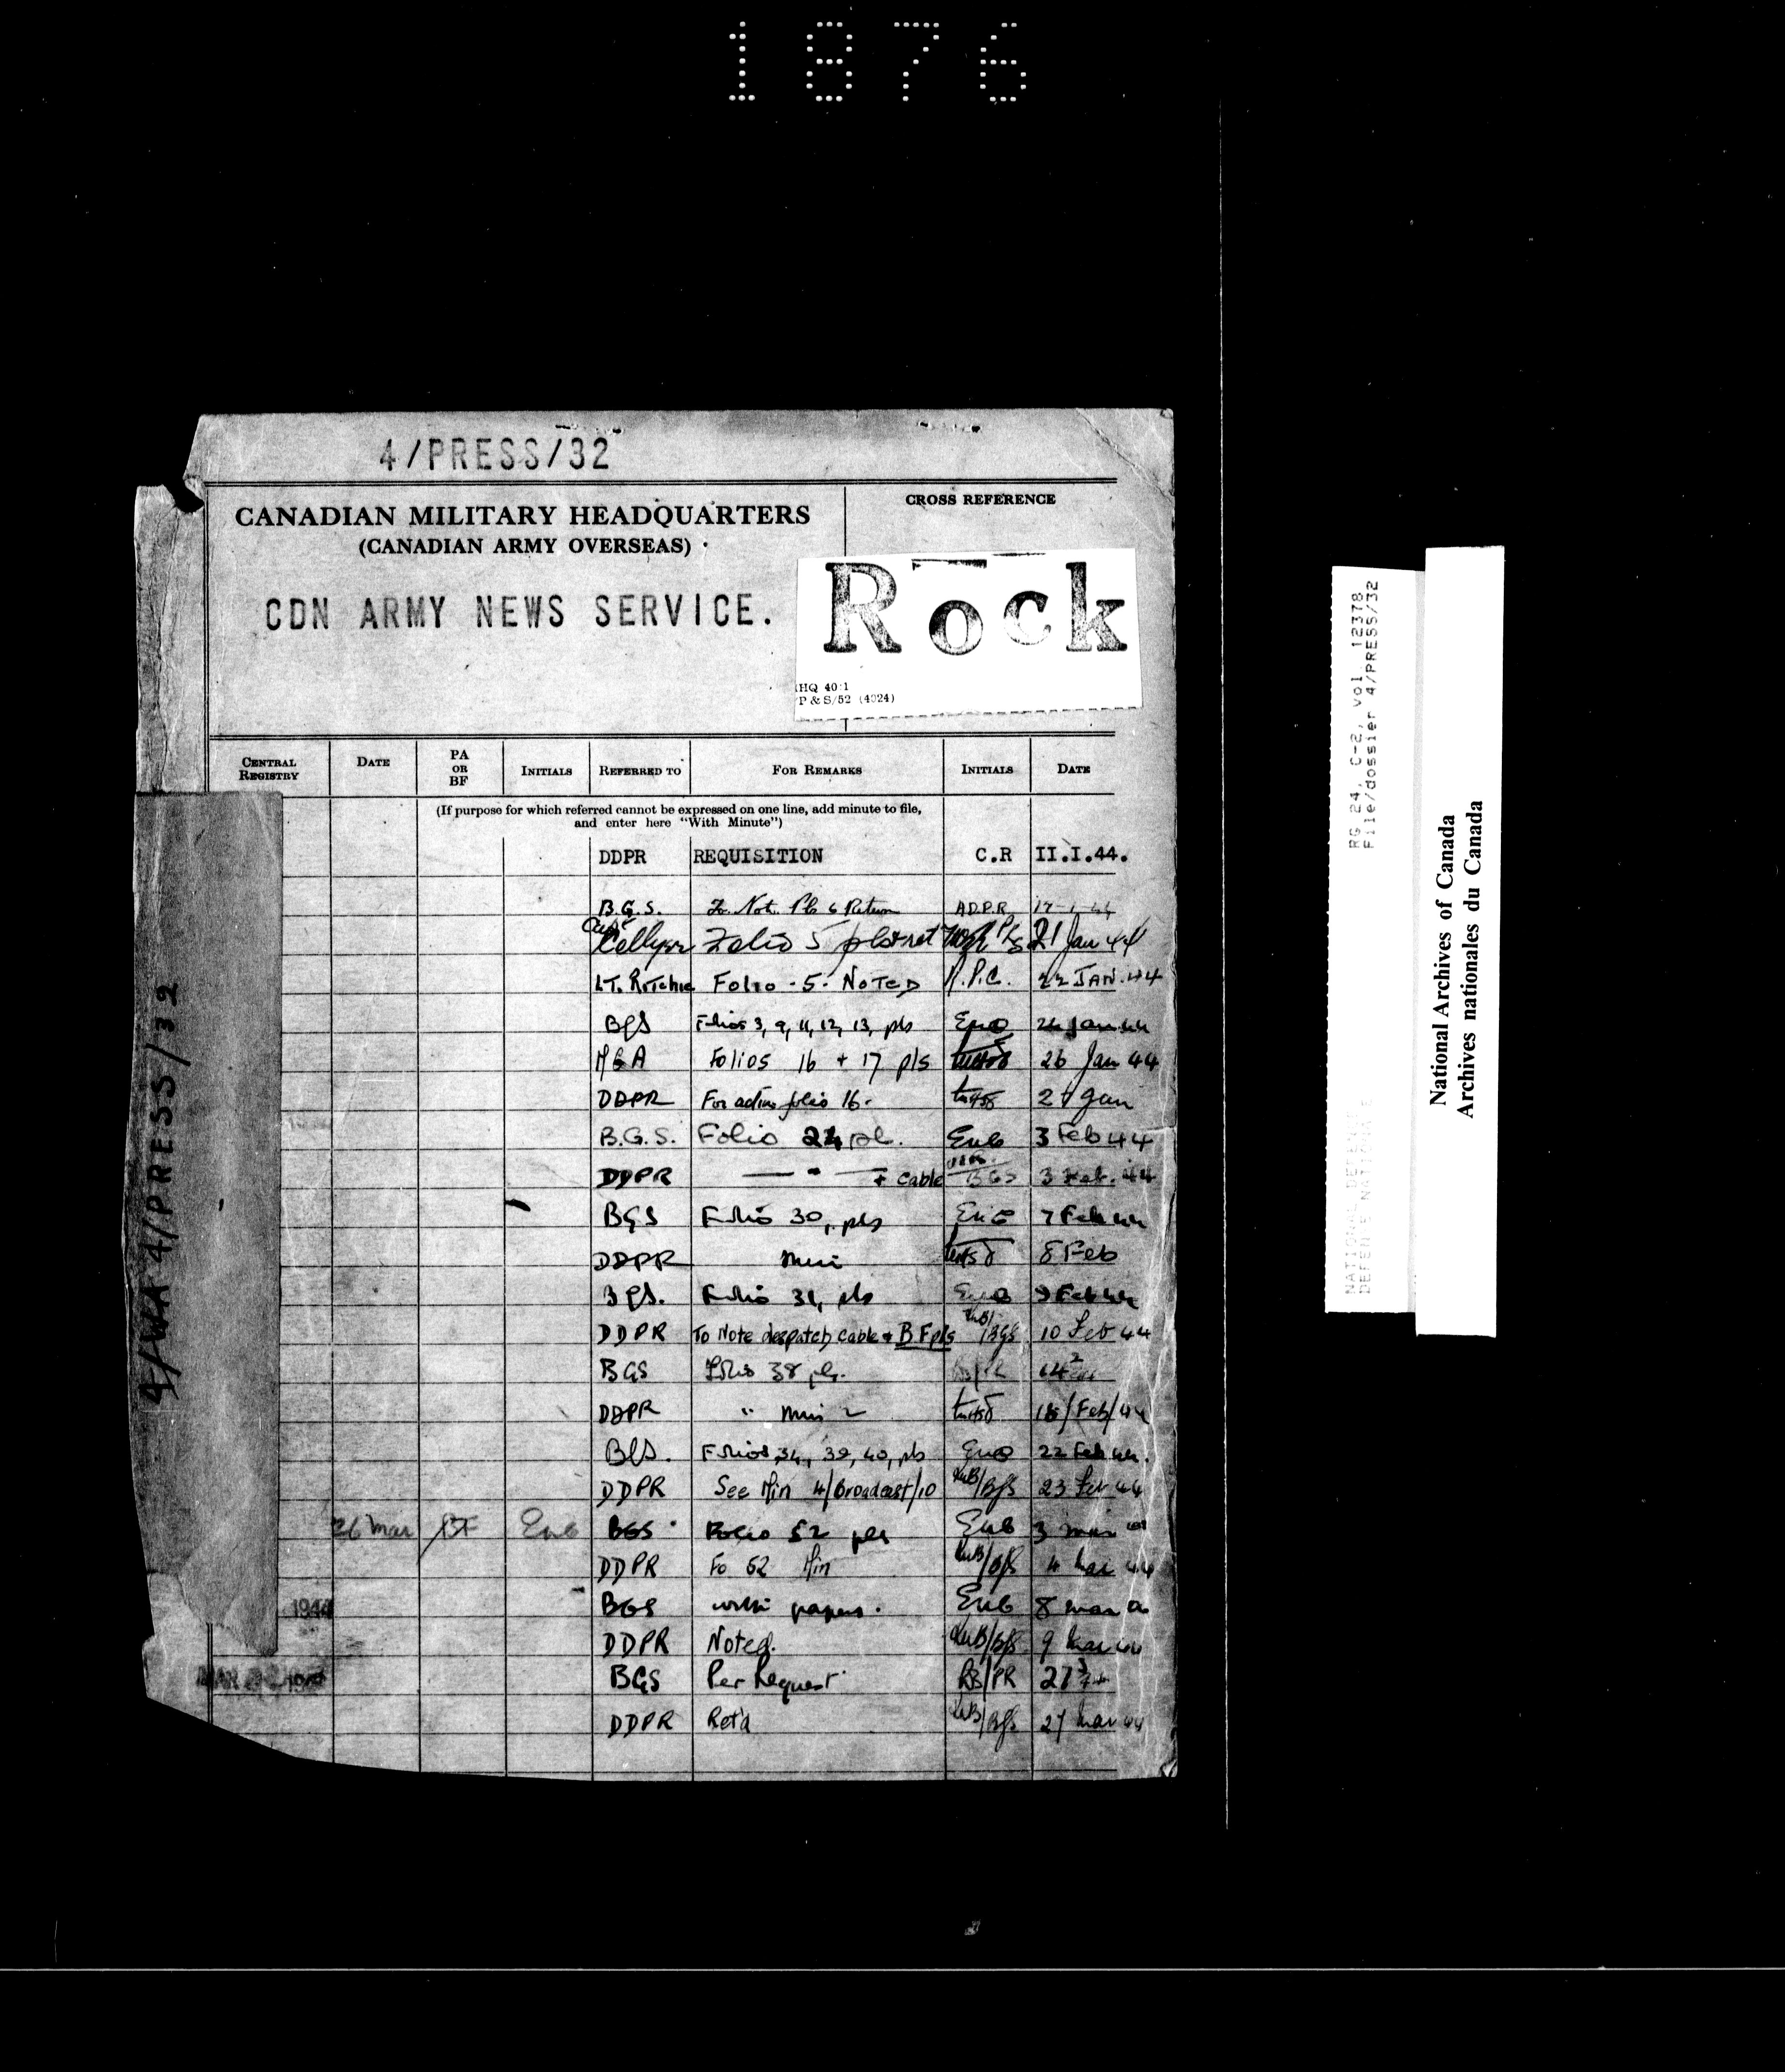 1876
4/PRESS/32
CANADIAN MILITARY HEADQUARTERS
(CANADIAN ARMY OVERSEAS)
CROSS REFERENCE
CDN ARMY NEWS SERVICE.
Rock
HQ 40:1
P & S/52 (4024)
CENTRAL REGISTRY DATE PA OR BF INITIALS REFERRED TO FOR REMARKS INITIALS DATE
(If purpose for which referred cannot be expressed on one line, add minute to file,
and enter here "With Minute")
DDPR REQUISITION C.R II.I.44.
B.G.S. Return ADPR
Folio 5 21 Jan 44
LT. Ritchie Folio - 5 - NOTED R.P.C. 22 JAN. 44
BGS Folios 3, 9, 11, 12, 13, pls
Folios 16 + 17 pls 26 Jan 44
DDPR For action folio 16. Jan
B.G.S. Folio 24 pl. 3 Feb 44
DDPR — " — + cable BGS 3 Feb. 44
BGS Folio 30, pls 7 Feb 44
DDPR 8 Feb
BGS. Folio 31, pls 9 Feb 44
DDPR To Note despatch cable + B F pls BGS 10 Feb 44
BGS Folio 38 pls.
DDPR " Feb/44
BGS. Folios 34, 39, 40, pls 22 Feb 44.
DDPR See Min 4/Broadcast/10 /BGS 23 Feb 44
26 Mar BF BGS Folio 52 pls 3 Mar
DDPR Fo 52 Min /BGS 4 Mar 44
1944 BGS with papers. 8 Mar
DDPR Noted. /BGS 9 Mar 44
MAR BGS Per Request RB/PR 27
DDPR Ret'd /BGS 27 Mar 44
4/WA 4/PRESS/32
RG 24, C-2, vol. 12378,
File/dossier 4/PRESS/32
NATIONAL DEFENCE
DEFENSE NATIONALE
National Archives of Canada
Archives nationales du Canada